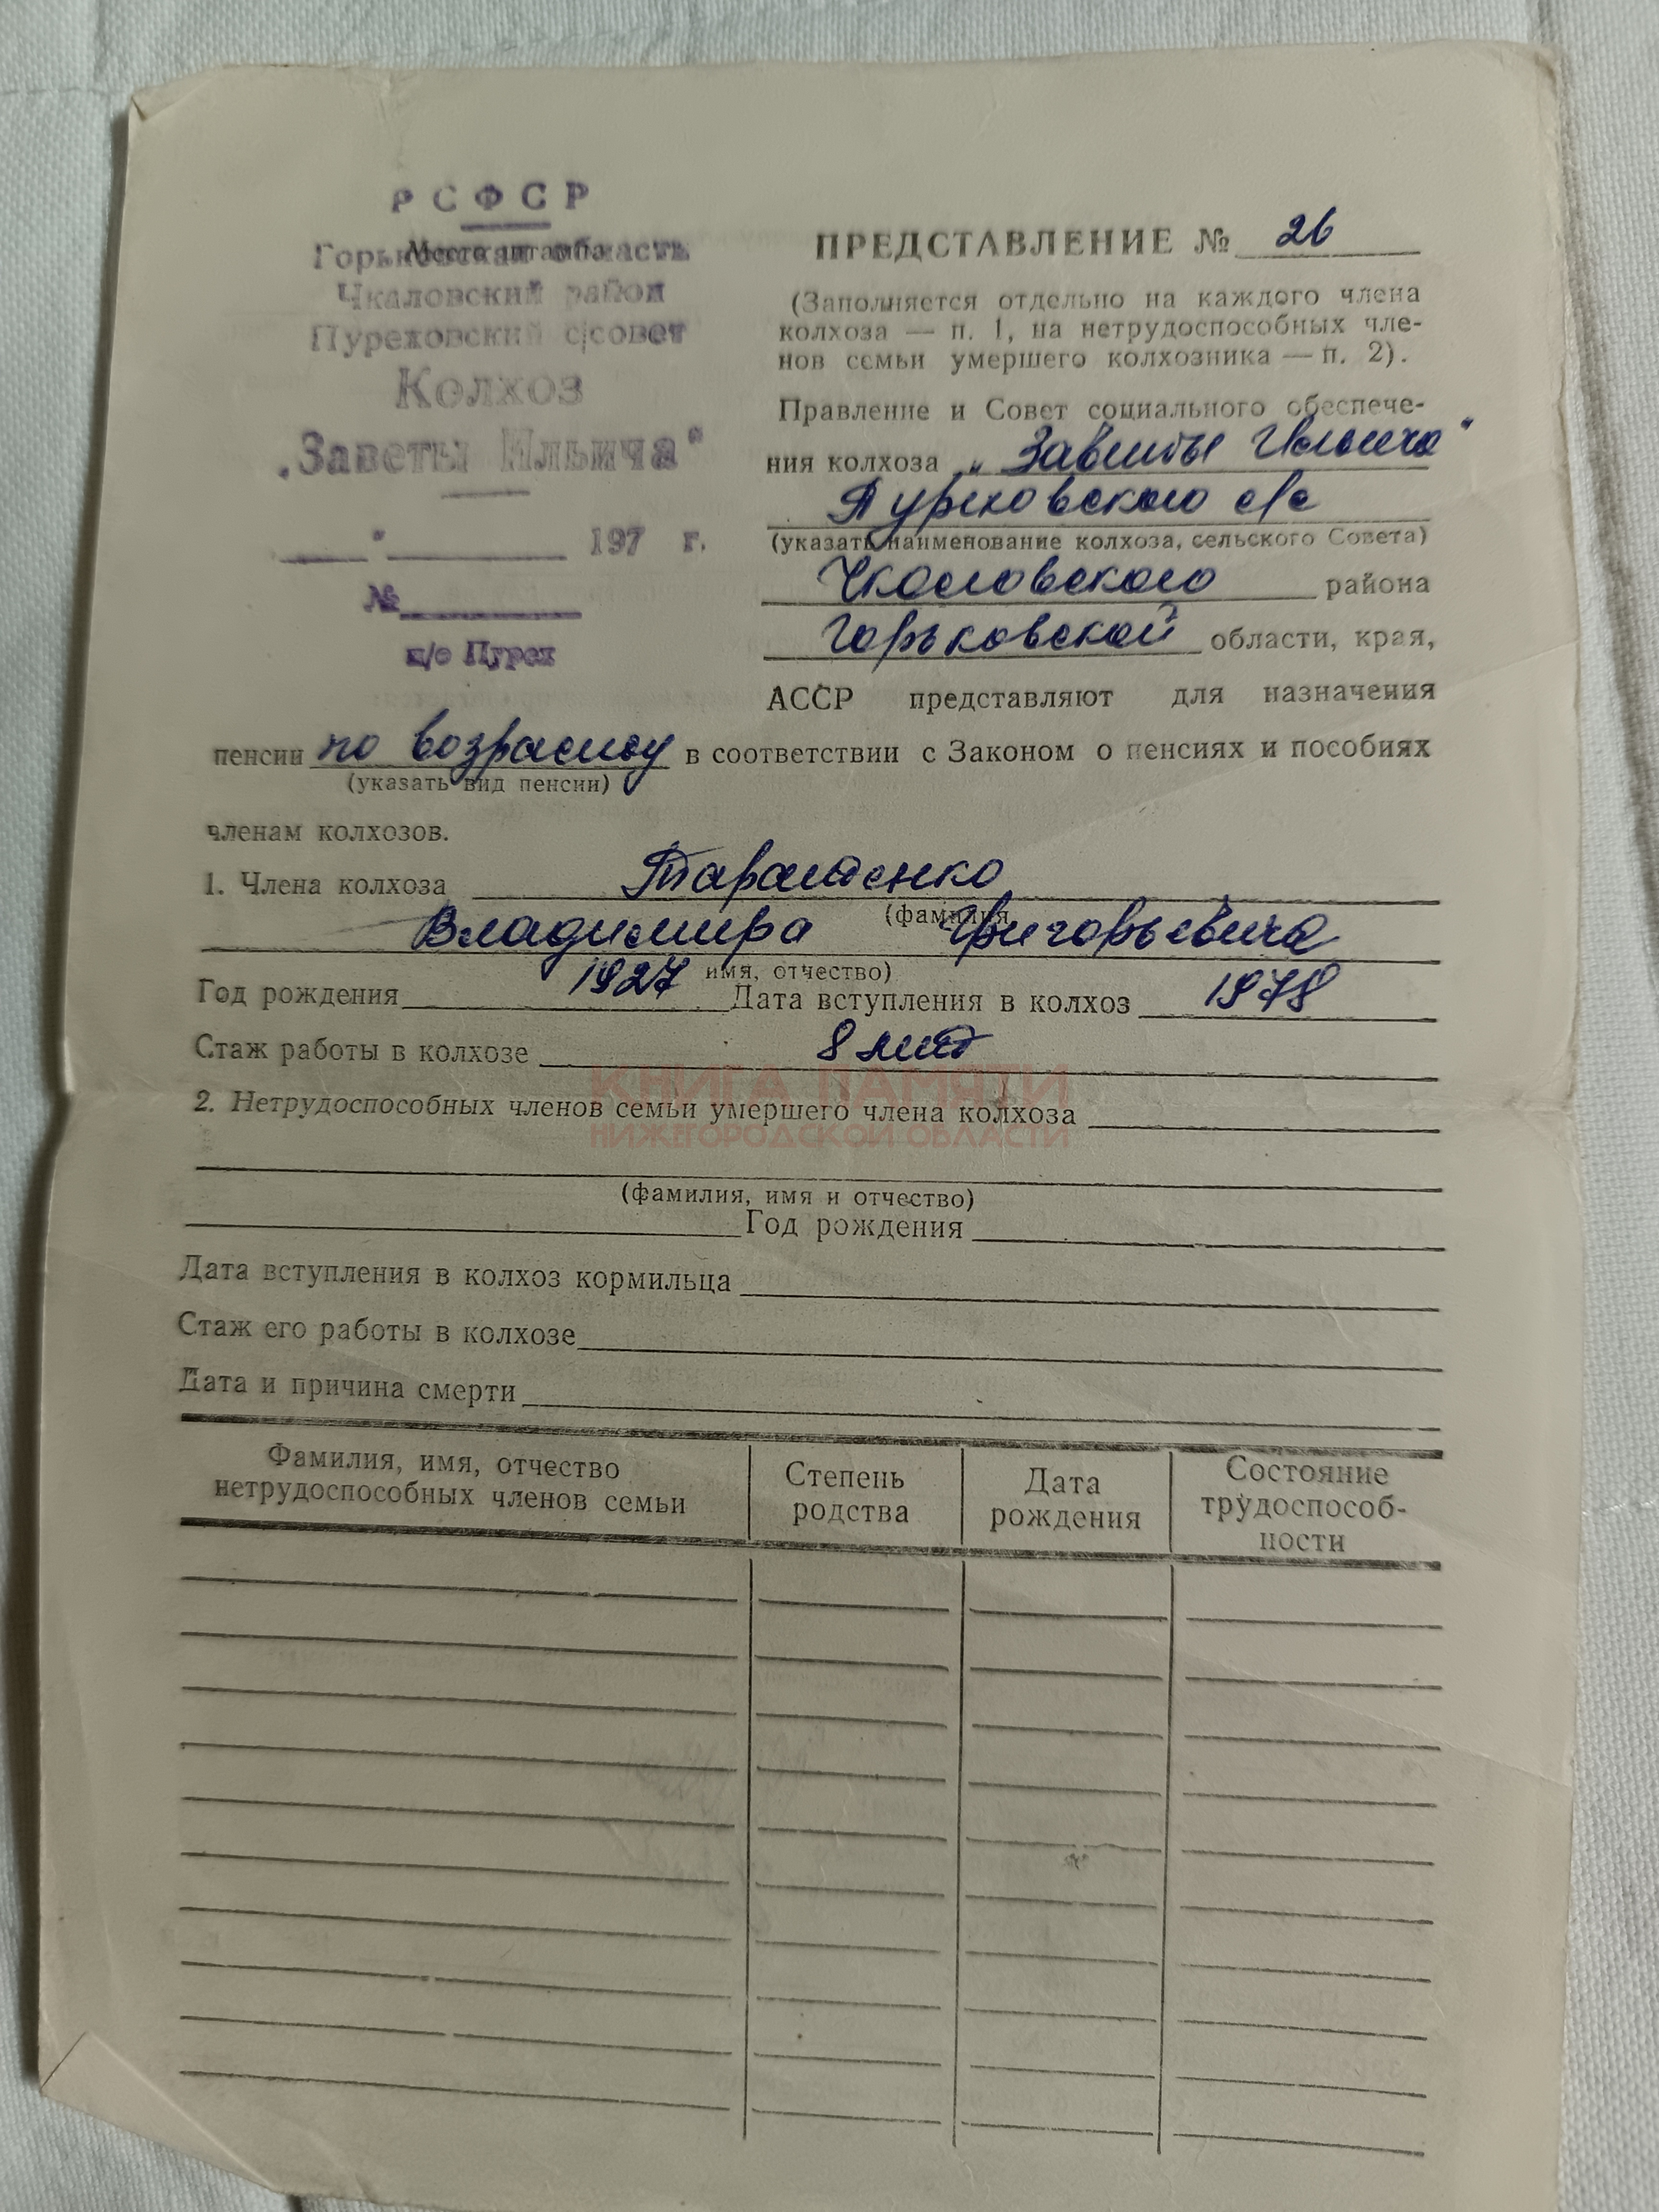 РСФСР
Место штампа
Горьковская область
Чкаловский район
Пуреховский с|совет
Колхоз
„Заветы Ильича"
" 197 г.
№
п/о Пурех
ПРЕДСТАВЛЕНИЕ № 26
(Заполняется отдельно на каждого члена
колхоза — п. 1, на нетрудоспособных чле-
нов семьи умершего колхозника — п. 2).
Правление и Совет социального обеспече-
ния колхоза „Заветы Ильича"
Пуреховского с/с
(указать наименование колхоза, сельского Совета)
Чкаловского района
Горьковской области, края,
АССР представляют для назначения
пенсии по возрасту в соответствии с Законом о пенсиях и пособиях
(указать вид пенсии)
членам колхозов.
1. Члена колхоза Таратенко
(фамилия,
Владимира Григорьевича
имя, отчество)
Год рождения 1927 Дата вступления в колхоз 1978
Стаж работы в колхозе 8 лет
КНИГА ПАМЯТИ
НИЖЕГОРОДСКОЙ ОБЛАСТИ
2. Нетрудоспособных членов семьи умершего члена колхоза
(фамилия, имя и отчество)
Год рождения
Дата вступления в колхоз кормильца
Стаж его работы в колхозе
Дата и причина смерти
Фамилия, имя, отчество
нетрудоспособных членов семьи
Степень
родства
Дата
рождения
Состояние
трудоспособ-
ности